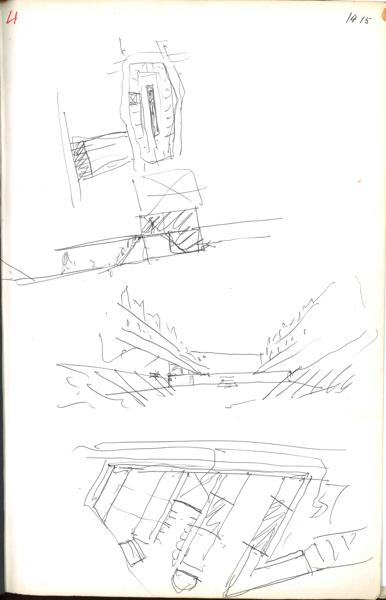 4
1415